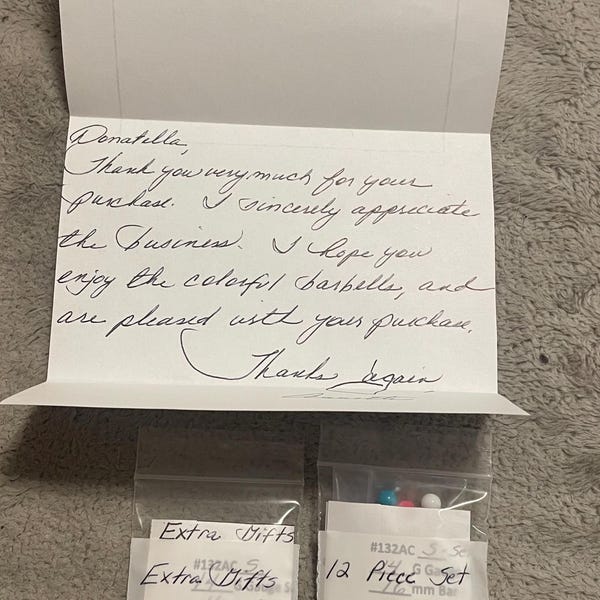 Donatella,
Thank you very much for your
purchase. I sincerely appriciate
the business. I hope you
enjoy the colorful barbells, and
are pleased with your purchase.
Thanks again
Extra Gifts
#132AC S
Extra Gifts
#132AC S-Se
12 Piece Set
mm Bar